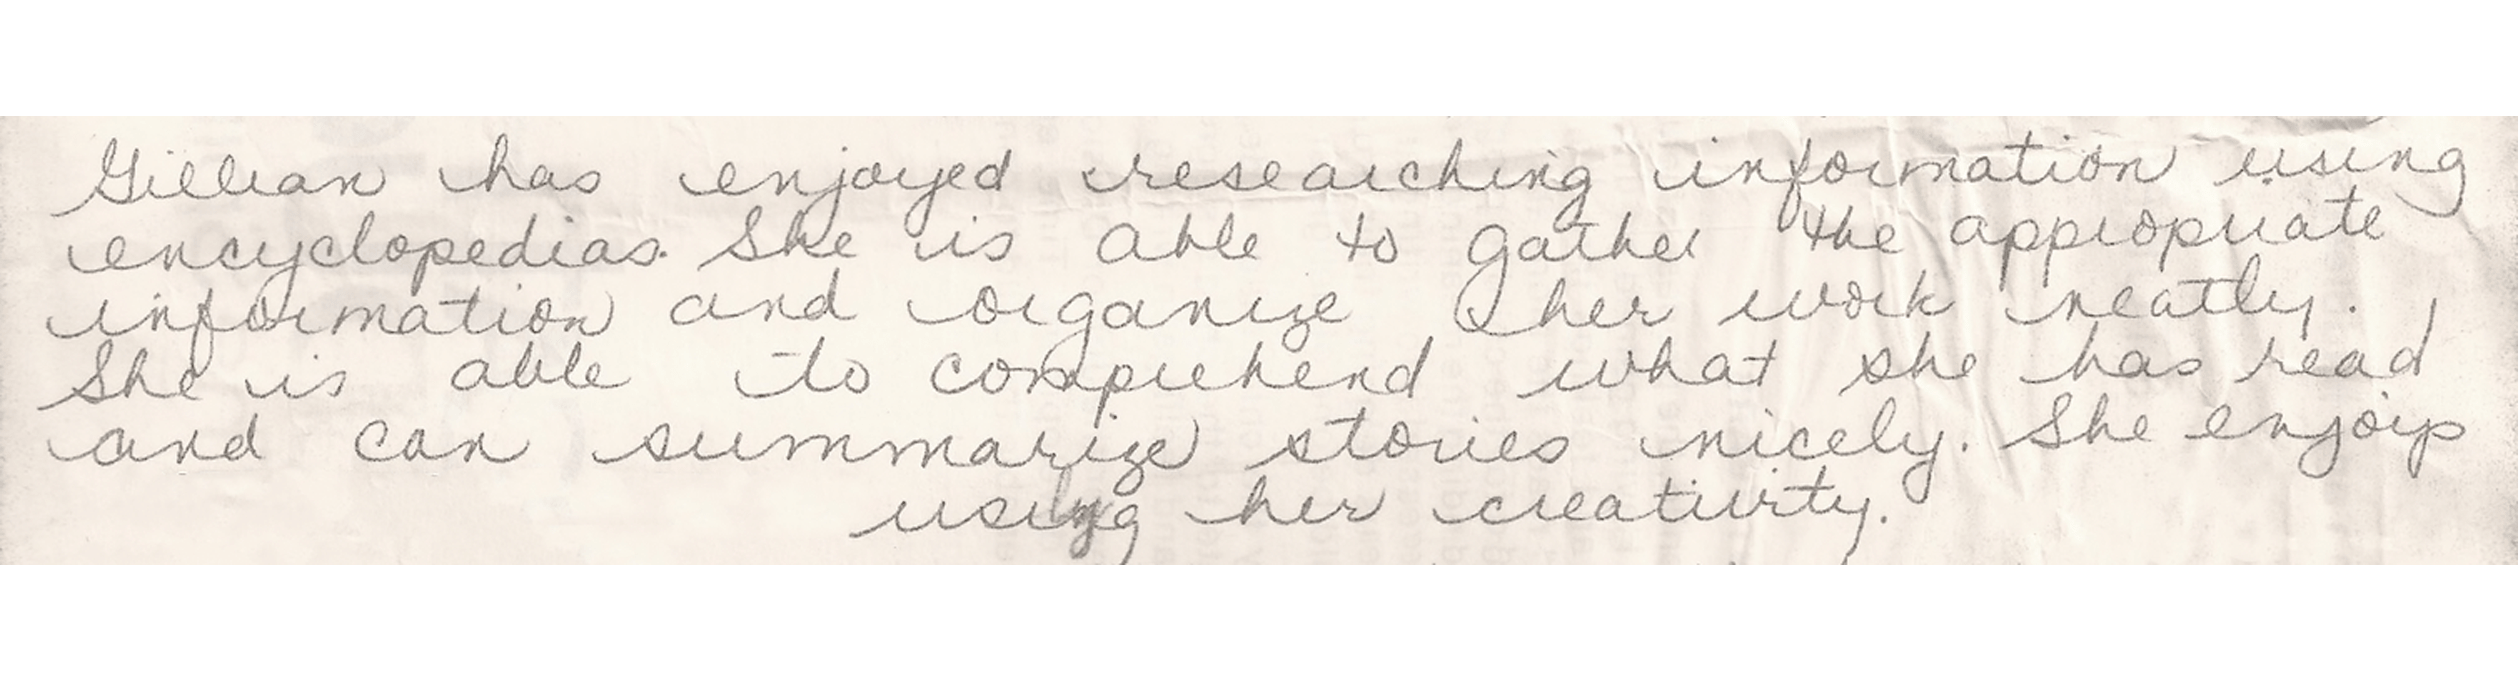 Gillian has enjoyed researching information using
encyclopedias. She is able to gather the appropriate
information and organize her work neatly.
She is able to comprehend what she has read
and can summarize stories nicely. She enjoys
using her creativity.